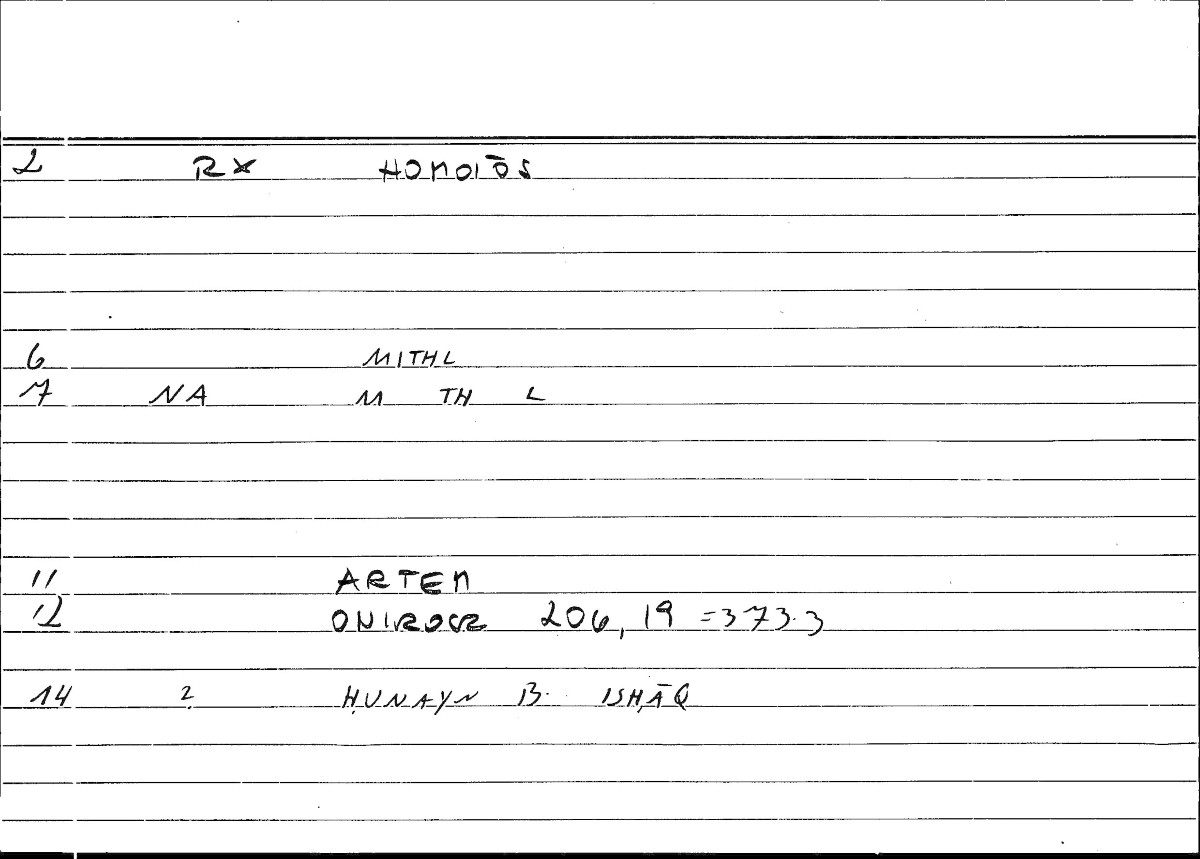 2 RX HOMOIŌS
6 MITHL
7 NA M TH L
11 ARTEM
12 ONIROCR 206,19 =373.3
14 2 ḤUNAYN B. ISḤĀQ